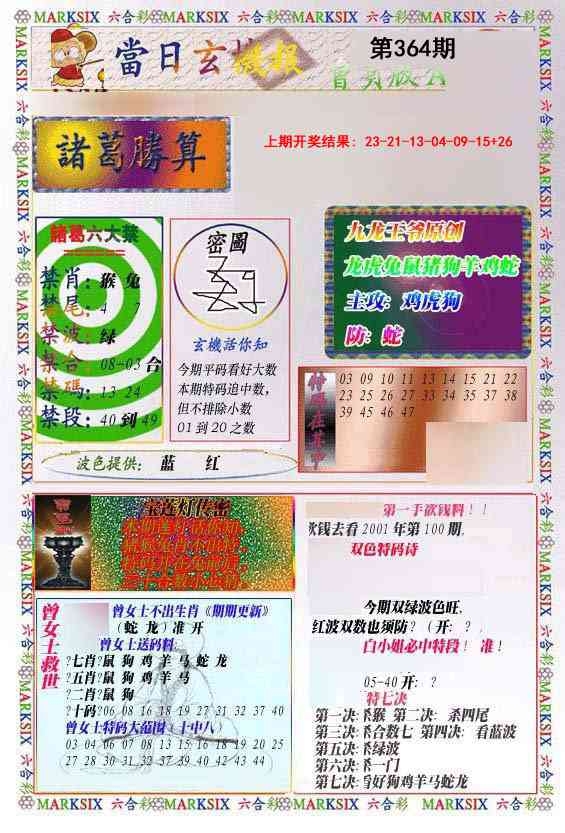 MARKSIX 六合彩 MARKSIX 六合彩 MARKSIX 六合彩 MARKSIX 六合彩
當日玄機報
第364期
諸葛勝算
上期开奖结果: 23-21-13-04-09-15+26
諸葛六大禁
禁肖: 猴 兔
禁尾: 4 7
禁波: 绿
禁合: 08-03 合
禁碼: 13 24
禁段: 40 到 49
密圖
玄機話你知
今期平码看好大数
本期特码追中数,
但不排除小数
01 到 20 之数
九龙王爷原创
龙虎兔鼠猪狗羊鸡蛇
主攻: 鸡虎狗
防: 蛇
特碼在其中
03 09 10 11 13 14 15 21 22
23 25 26 27 33 34 35 37 38
39 45 46 47
波色提供: 蓝 红
宝莲灯传密
曾女士救世
曾女士不出生肖《期期更新》
(蛇 龙) 准 开
曾女士送码料:
?七肖?鼠 狗 鸡 羊 马 蛇 龙
?五肖?鼠 狗 鸡 羊 马
?二肖?鼠 狗
?十码?06 08 16 18 19 27 31 32 37 40
曾女士特码大范围 (十中八)
03 04 06 07 08 13 15 16 18 19 20 25
27 28 30 31 32 37 39 40 42 43 44
第一手欲钱料!!
欲钱去看 2001 年第 100 期,
双色特码诗
今期双绿波色旺,
红波双数也须防? (开: ? ,
白小姐必中特段! 准!
05-40 开: ?
特七决
第一决:杀猴 第二决: 杀四尾
第三决:杀合数七 第四决: 看蓝波
第五决:杀绿波
第六决:杀一门
第七决:看好狗鸡羊马蛇龙
MARKSIX 六合彩 MARKSIX 六合彩 MARKSIX 六合彩 MARKSIX 六合彩